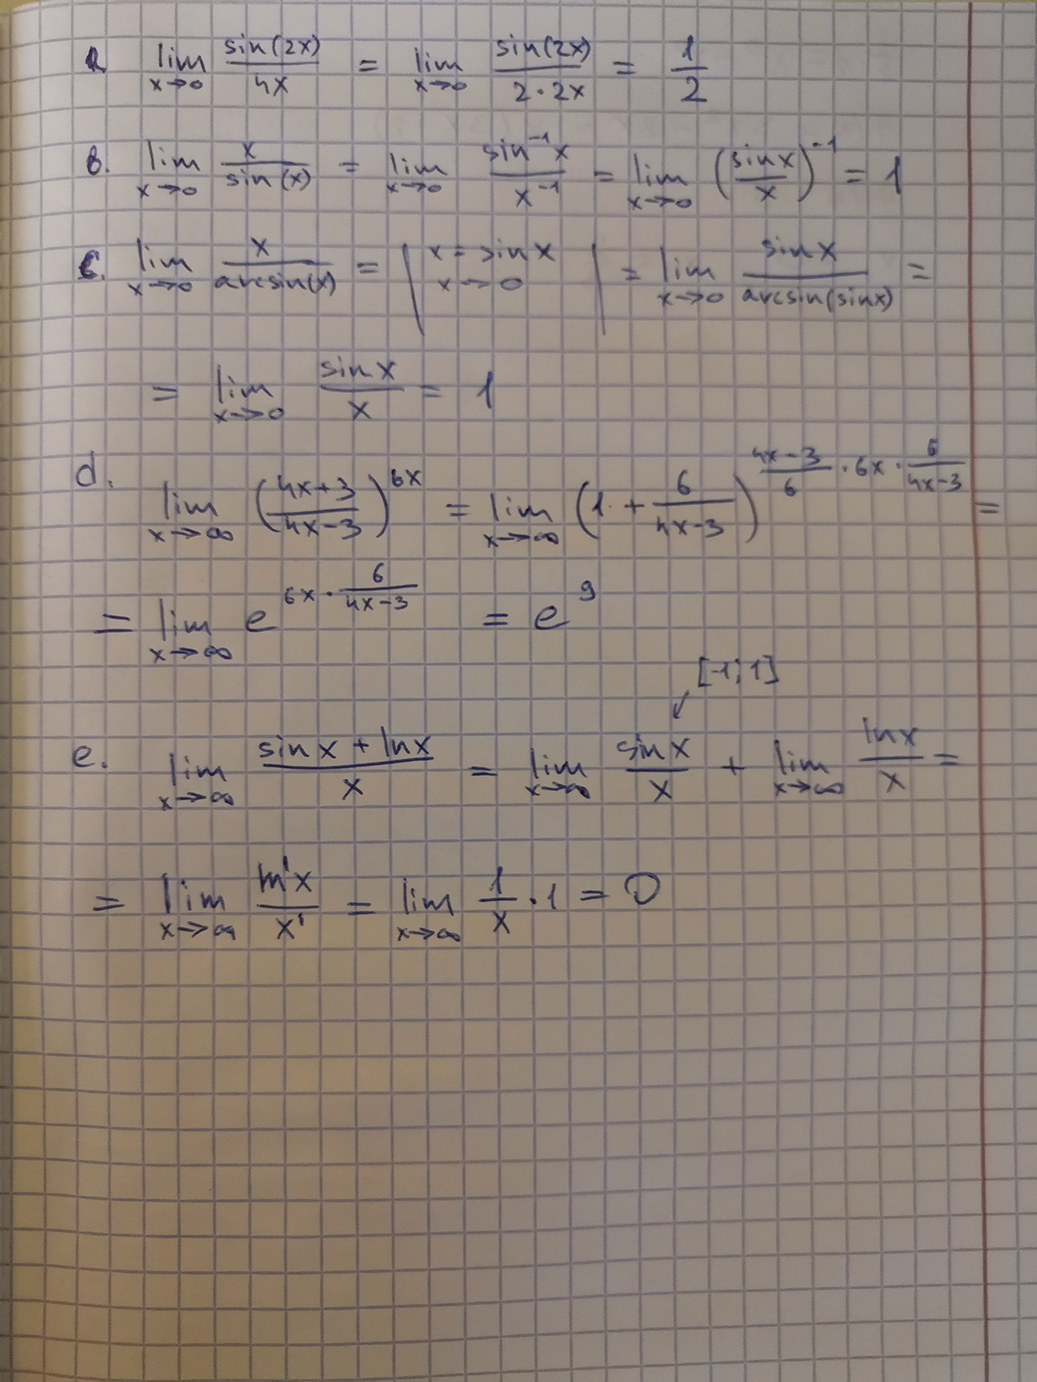 a. lim x→0 sin(2x)/4x = lim x→0 sin(2x)/2·2x = 1/2
b. lim x→0 x/sin(x) = lim x→0 sin⁻¹x/x⁻¹ = lim x→0 (sinx/x)⁻¹ = 1
c. lim x→0 x/arcsin(x) = | x = sinx x→0 | = lim x→0 sinx/arcsin(sinx) =
= lim x→0 sinx/x = 1
d. lim x→∞ ((4x+3)/(4x-3))^(6x) = lim x→∞ (1 + 6/(4x-3))^((4x-3)/6 · 6x · 6/(4x-3)) =
= lim x→∞ e^(6x · 6/(4x-3)) = e⁹
[-1;1]
e. lim x→∞ (sinx + lnx)/x = lim x→∞ sinx/x + lim x→∞ lnx/x =
= lim x→∞ ln'x/x' = lim x→∞ 1/x · 1 = 0